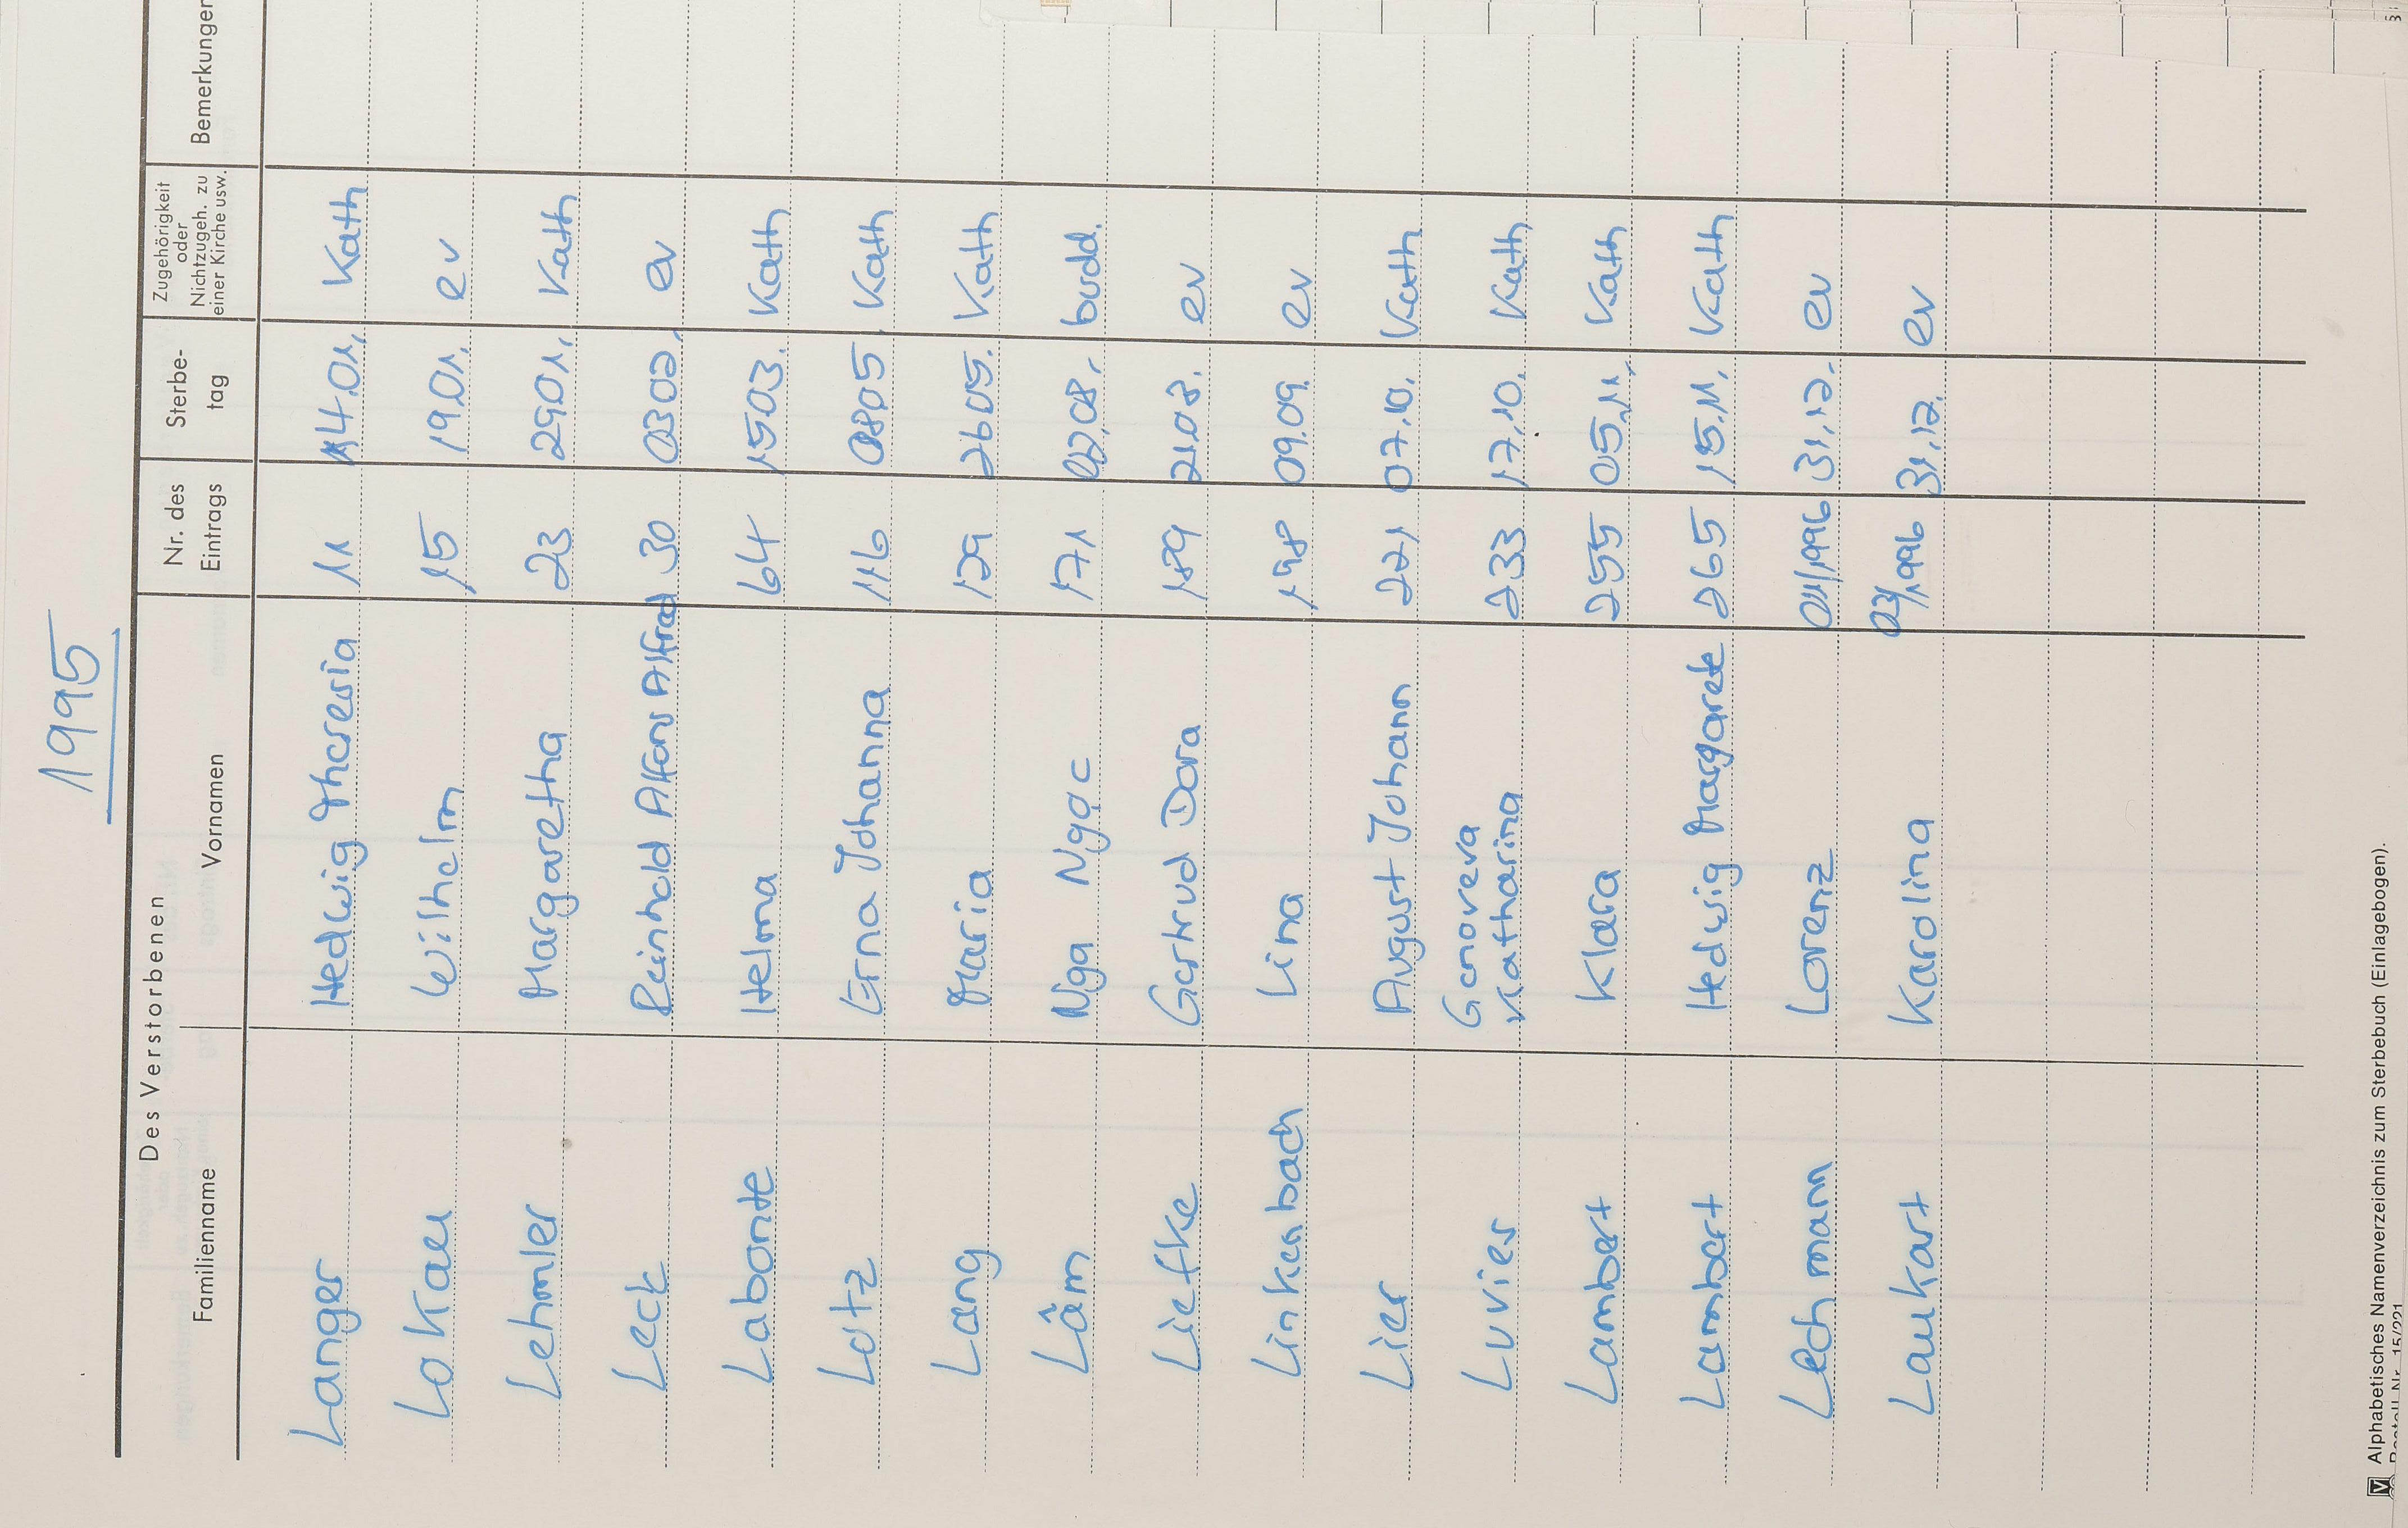 1995
Des Verstorbenen
Familienname Vornamen Nr. des Eintrags Sterbe-tag Zugehörigkeit oder Nichtzugeh. zu einer Kirche usw. Bemerkungen
Langer Hedwig Theresia 11 14.01. Kath
Lokau Wilhelm 15 19.01. ev
Lehmler Margaretha 23 29.01. Kath
Leck Reinhold Alfons Alfred 30 03.02. ev
Labonte Helma 64 15.03. Kath
Lotz Erna Johanna 116 08.05. Kath
Lang Maria 129 26.05. Kath
Lâm Nga Ngọc 171 02.08. budd.
Liefke Gertrud Dora 189 21.08. ev
Linkenbach Lina 198 09.09. ev
Lier August Johann 221 07.10. Kath
Luvier Genoveva Katharina 233 17.10. Kath
Lambert Klara 255 05.11. Kath
Lambert Hedwig Margarete 265 15.11. Kath
Lechmann Lorenz 01/1996 31.12. ev
Laukart Karolina 03/1996 31.12. ev
V Alphabetisches Namenverzeichnis zum Sterbebuch (Einlagebogen).
Bestell-Nr. 15/221